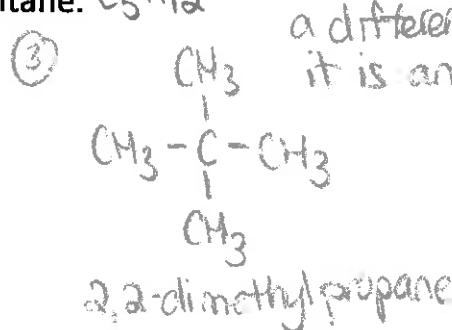 ntane. C5H12
a differen
③ CH3 it is an
CH3-C-CH3
CH3
2,2-dimethylpropane